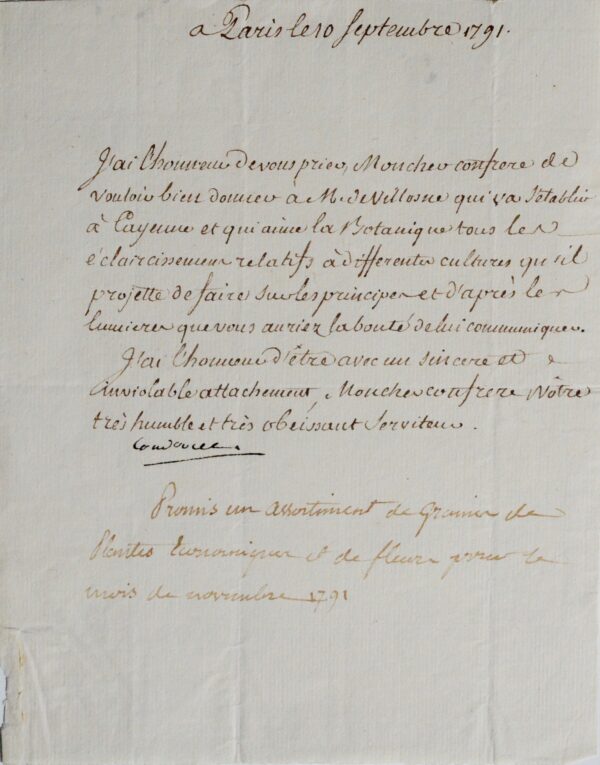 a Paris le 10 Septembre 1791.
J'ai l'honneur de vous prier, Mon cher confrere de
vouloir bien donner à M. de Villosne qui va s'établir
à Cayenne et qui aime la Botanique tous les
éclaircissemens relatifs à differentes cultures qu'il
projette de faire sur les principes et d'après les
lumieres que vous auriez la bonté de lui communiquer.
J'ai l'honneur d'être avec un sincere et
inviolable attachement, Mon cher confrere Votre
très humble et très obéissant Serviteur.
Condorcet
Promis un assortiment de Graines de
Plantes Economiques et de fleurs pour le
mois de novembre 1791